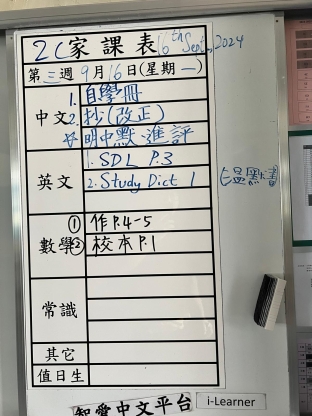 2C家課表 16th Sept, 2024
第三週9月16日(星期一)
中文
1. 自學冊
2. 抄(改正)
明中默、進評
英文
1. SDL P.3
2. Study Dict 1
温默書
數學
① 作P.4-5
② 校本P.1
常識
其它
值日生
智愛中文平台
i-Learner